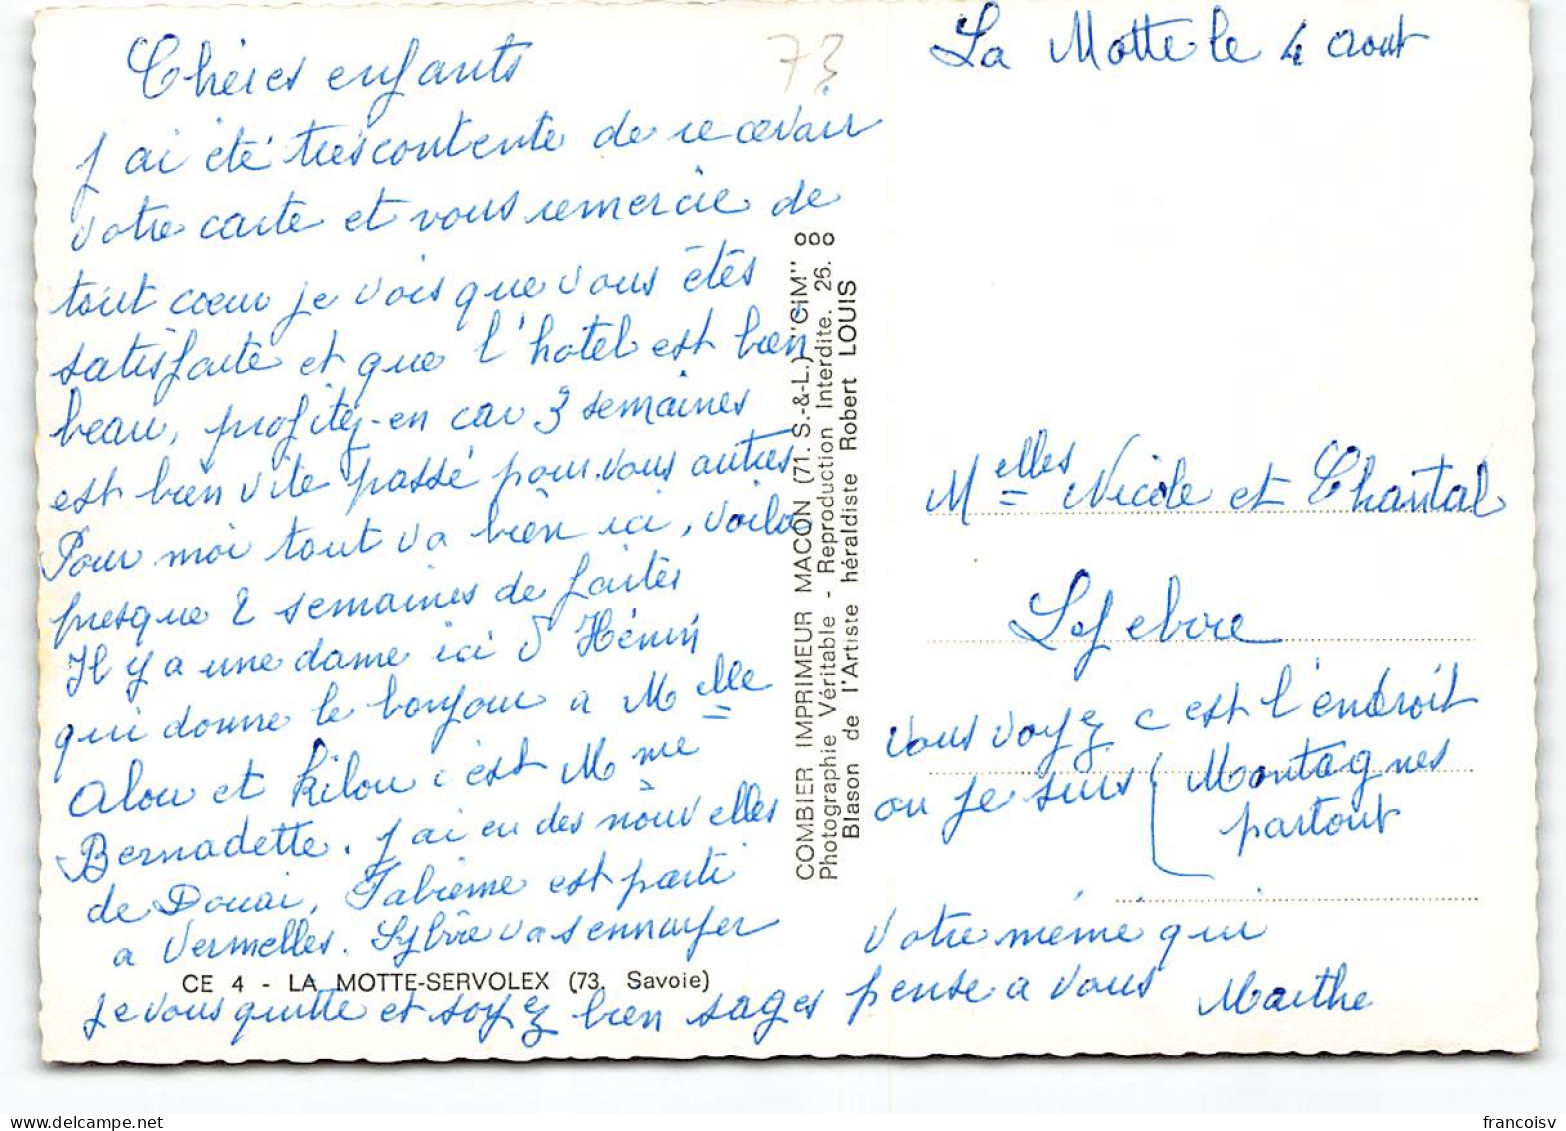 La Motte le 4 Aout
73
Chéres enfants
J ai été trés contente de recevoir
votre carte et vous remercie de
tout cœur je vois que vous étés
satisfaite et que l'hotel est bien
beau, profitez-en car 3 semaines
est bien vite passé pour vous autres
Pour moi tout va bien ici, voila
presque 2 semaines de faites
Il y a une dame ici d'Hénin
qui donne le bonjour a Melle
Alou et Kilou c'est Mme
Bernadette. J'ai eu des nouvelles
de Douai, Fabienne est parti
a Vermelles. Sylvie va sennuyer
je vous quitte et soyez bien sages
CE 4 - LA MOTTE-SERVOLEX (73. Savoie)
COMBIER IMPRIMEUR MACON (71. S.-&-L.) "CIM"
Photographie Véritable - Reproduction Interdite. 26.
Blason de l'Artiste héraldiste Robert LOUIS
Melles Nicole et Chantal
Lefebvre
vous voyez c est l'endroit
ou je suis ( Montagnes
partout
Votre mémé qui
pense a vous Marthe
francoisv